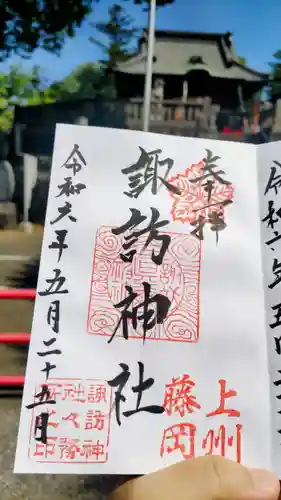 奉拝
上州
藤岡
諏訪神社
諏訪神
社々務
所之印
令和六年五月二十五日